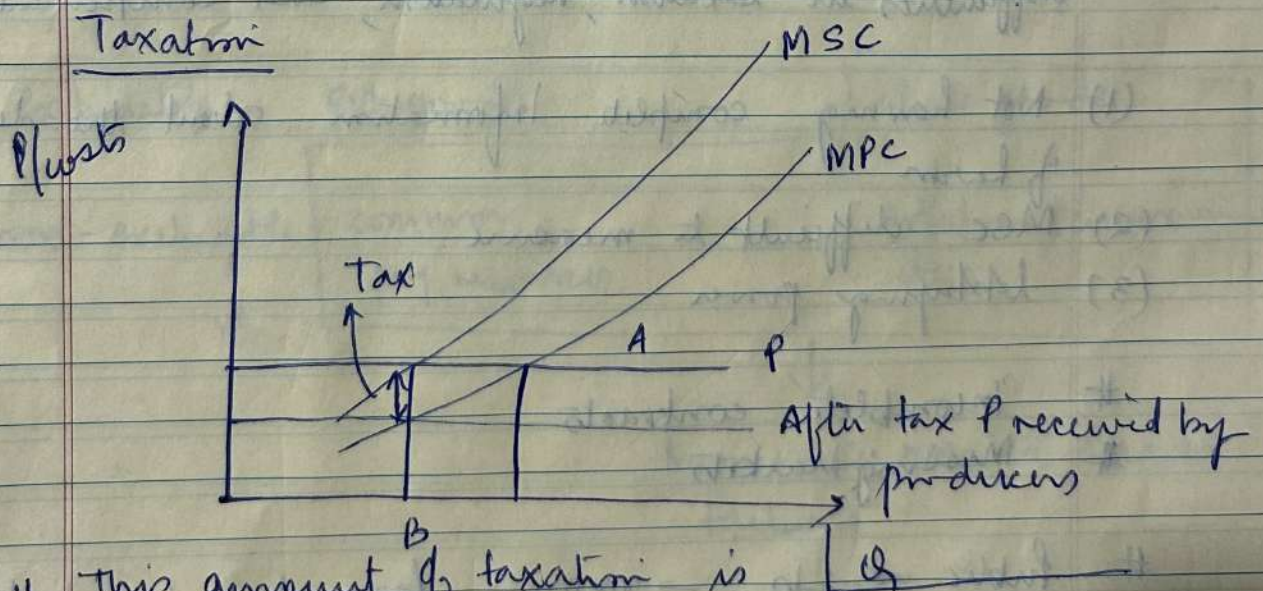 Taxation
MSC
P/costs
MPC
Tax
A
P
After tax P received by
producers
B
Q
This amount of taxation is